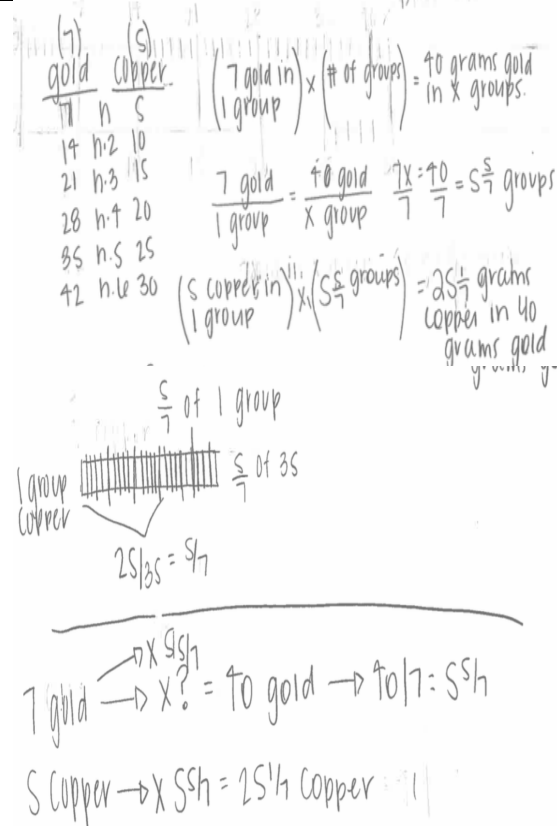 (7) (5)
gold copper
7 n 5
14 n·2 10
21 n·3 15
28 n·4 20
35 n·5 25
42 n·6 30
(7 gold in 1 group) x (# of groups) = 40 grams gold in x groups.
7 gold / 1 group = 40 gold / x group 7x/7 = 40/7 = 5 5/7 groups
(5 copper in 1 group) x (5 5/7 groups) = 25 1/7 grams copper in 40 grams gold
5/7 of 1 group
1 group copper
5/7 of 35
25/35 = 5/7
7 gold → x ? = 40 gold → 40/7 = 5 5/7
5 copper → x 5 5/7 = 25 1/7 copper